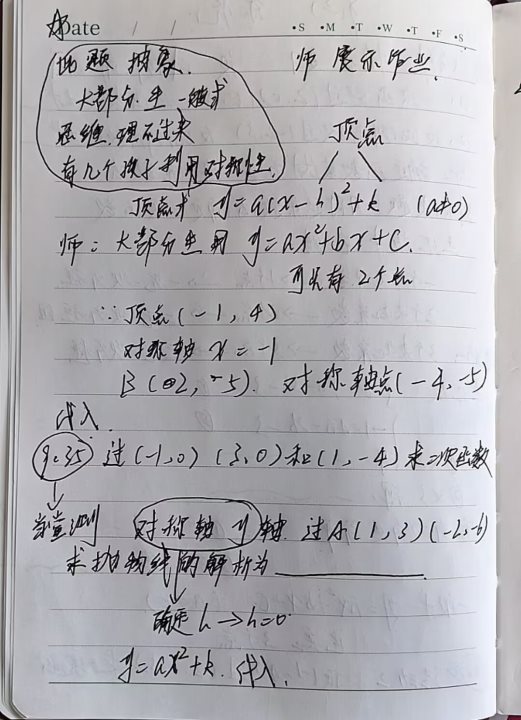 Date / / ·S ·M ·T ·W ·T ·F ·S
此题 抽象. 师 展示作业.
大部分生 一般式
思维 理不过来 顶点
有几个孩子利用对称性.
顶点式 y=a(x-h)²+k (a≠0)
师: 大部分生用 y=ax²+bx+c.
只有 2个点
∵ 顶点(-1, 4)
对称轴 x=-1
B (2, -5). 对称轴点(-4, -5)
代入.
9:35 过(-1,0) (3,0)和(1,-4)求二次函数
当堂测 对称轴 y轴. 过A(1,3)(-2,-6)
求抛物线的解析为
确定 h→h=0
y=ax²+k. 代入.